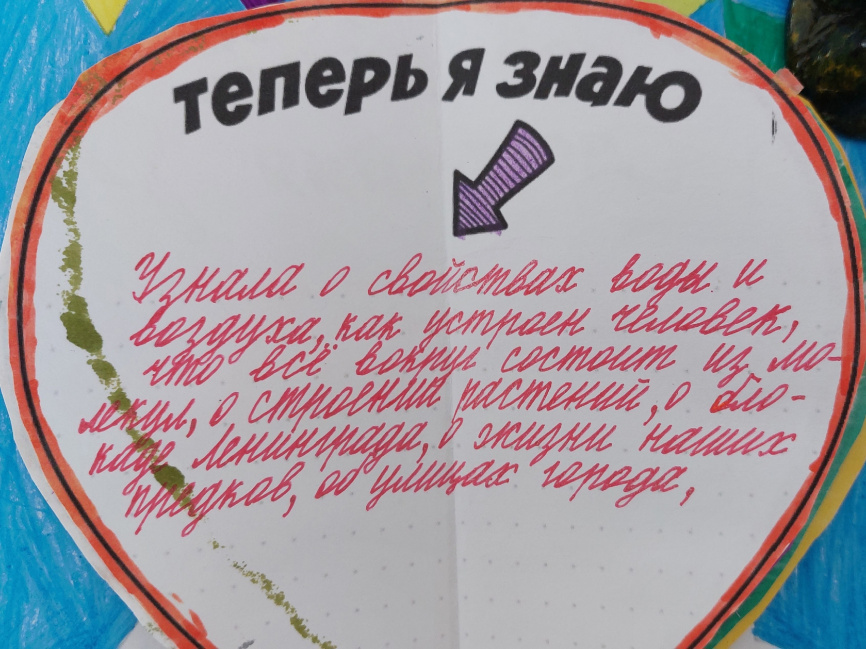 теперь я знаю
Узнала о свойствах воды и
воздуха, как устроен человек,
что всё вокруг состоит из мо-
лекул, о строении растений, о бло-
каде Ленинграда, о жизни наших
предков, об улицах города,